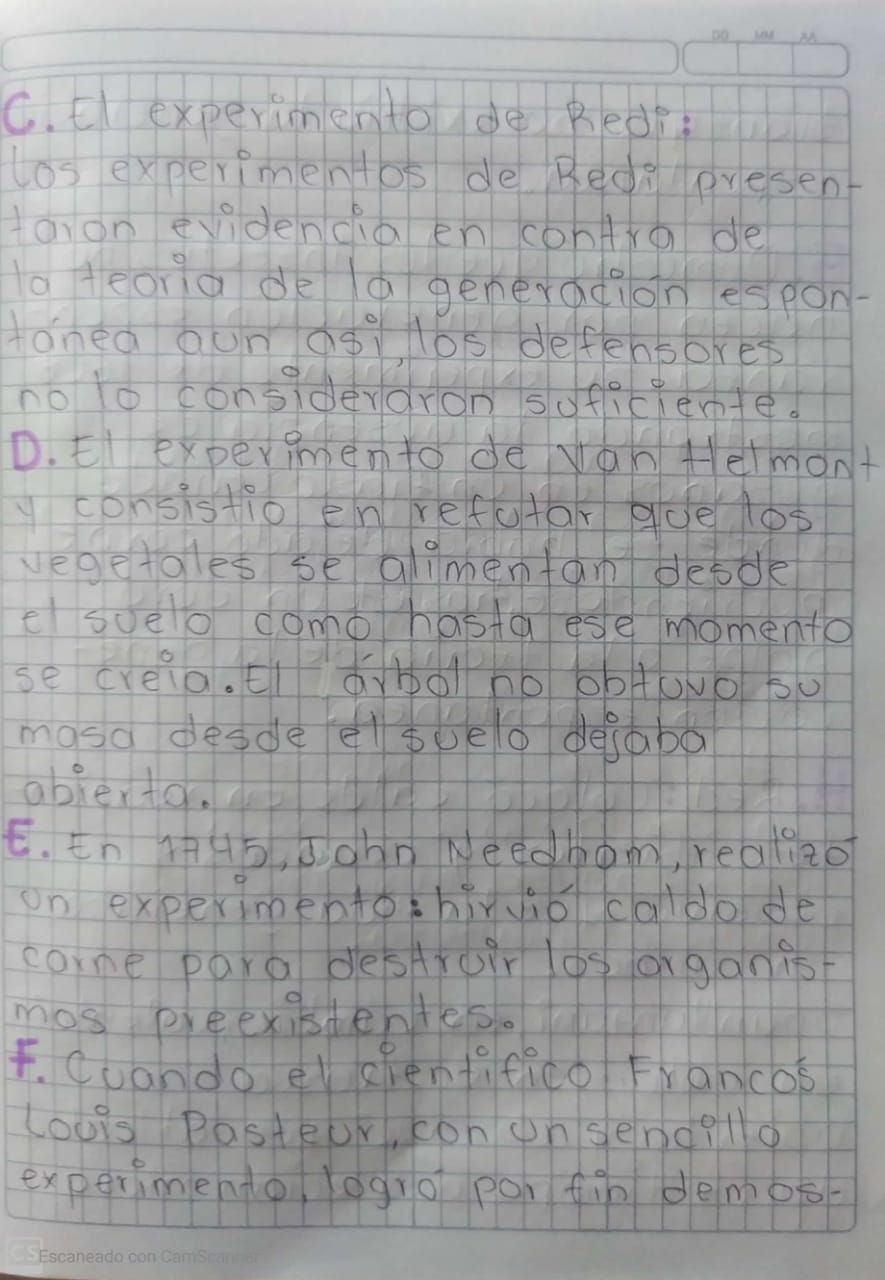 DD MM AA
C. El experimento de Redi:
los experimentos de Redi presen-
taron evidencia en contra de
la teoria de la generación espon-
tánea aun asi, los defensores
no lo consideraron suficiente.
D. El experimento de Van Helmont
y consistio en refutar que los
vegetales se alimentan desde
el suelo como hasta ese momento
se creia. El árbol no obtuvo su
masa desde el suelo dejaba
abierta.
E. En 1745, John Needham, realizó
un experimento: hirvió caldo de
carne para destruir los organis-
mos preexistentes.
F. Cuando el cientifico Francos
Louis Pasteur, con un sencillo
experimento, logró por fin demos-
CS Escaneado con CamScanner